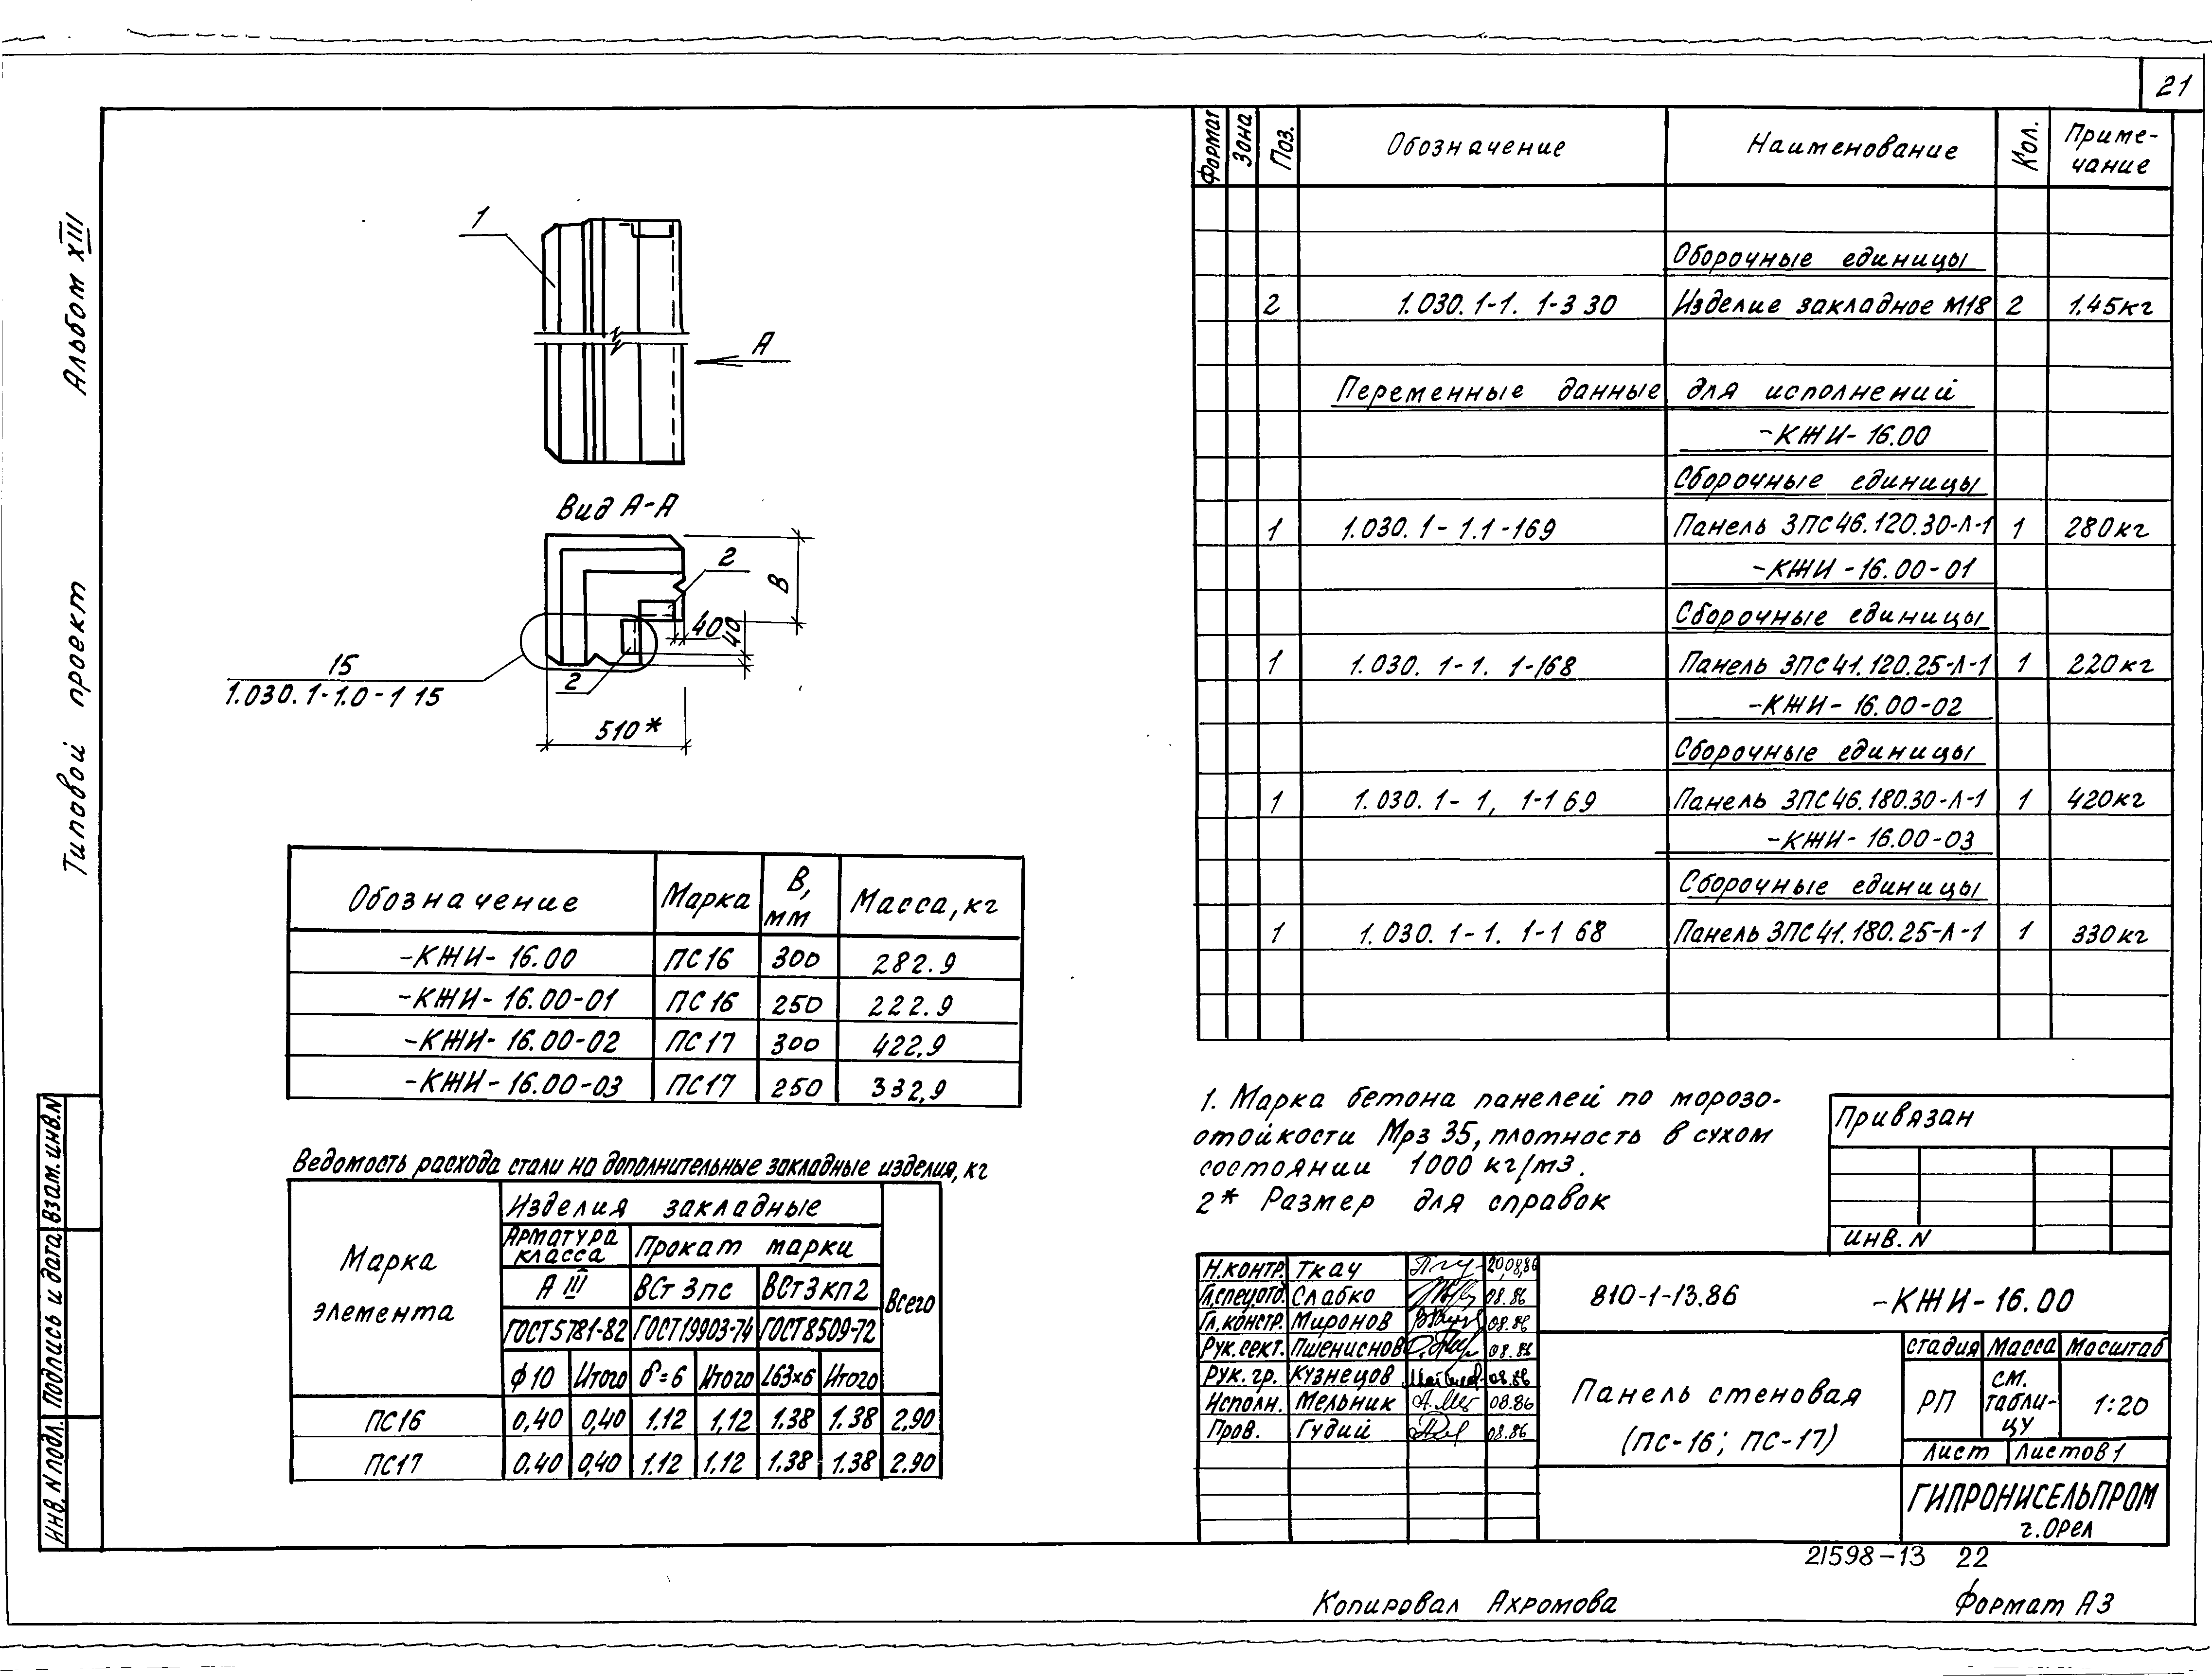 21
Альбом XIII
Типовой проект
1
А
Вид А-А
2
В
40
40
2
15
1.030.1-1.0-1 15
510*
Формат
Зона
Поз.
Обозначение
Наименование
Кол.
Приме-
чание
Сборочные единицы
2 1.030.1-1. 1-3 30 Изделие закладное М18 2 1.45кг
Переменные данные для исполнений
-КЖИ-16.00
Сборочные единицы
1 1.030.1-1.1-169 Панель 3ПС46.120.30-Л-1 1 280кг
-КЖИ-16.00-01
Сборочные единицы
1 1.030.1-1. 1-168 Панель 3ПС41.120.25-Л-1 1 220кг
-КЖИ-16.00-02
Сборочные единицы
1 1.030.1-1, 1-169 Панель 3ПС46.180.30-Л-1 1 420кг
-КЖИ-16.00-03
Сборочные единицы
1 1.030.1-1. 1-1 68 Панель 3ПС41.180.25-Л-1 1 330кг
Обозначение Марка В, мм Масса, кг
-КЖИ-16.00 ПС16 300 282.9
-КЖИ-16.00-01 ПС16 250 222.9
-КЖИ-16.00-02 ПС17 300 422,9
-КЖИ-16.00-03 ПС17 250 332,9
Ведомость расхода стали на дополнительные закладные изделия, кг
Марка
элемента
Изделия закладные
Арматура
класса
Прокат марки
А III ВСт 3пс ВСт3кп2
Всего
ГОСТ5781-82 ГОСТ19903-74 ГОСТ8509-72
ф10 Итого δ=6 Итого L63×6 Итого
ПС16 0,40 0,40 1.12 1,12 1.38 1.38 2,90
ПС17 0.40 0,40 1.12 1.12 1.38 1.38 2.90
1. Марка бетона панелей по морозо-
стойкости Мрз 35, плотность в сухом
состоянии 1000 кг/м3.
2* Размер для справок
Привязан
ИНВ. N
Н.контр. Ткач 20,08,86
Гл.спец.отд. Слабко 08.86
Гл.констр. Миронов 08.86
Рук.сект. Пшениснов 08.86
Рук.гр. Кузнецов 08.86
Исполн. Мельник 08.86
Пров. Гудий 08.86
810-1-13.86 -КЖИ-16.00
Панель стеновая
(ПС-16; ПС-17)
стадия Масса Масштаб
РП
см.
табли-
цу
1:20
Лист Листов 1
ГИПРОНИСЕЛЬПРОМ
г.Орел
Взам.инв.N
Подпись и дата
Инв. N подл.
21598-13 22
Копировал Ахромова
Формат А3